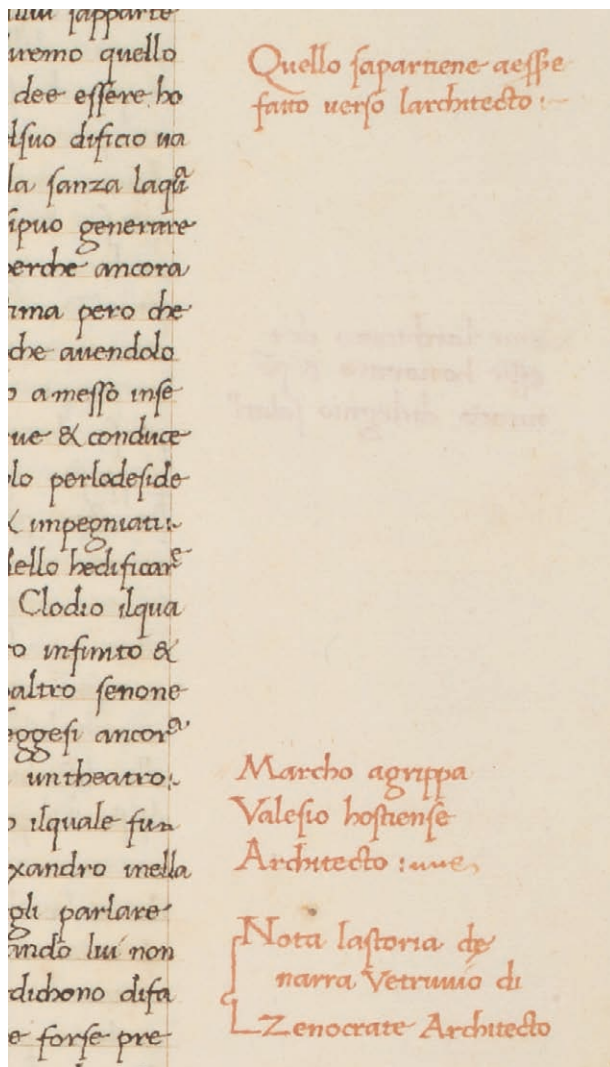 sapparte
uremo quello
dee essere ho
lsuo dificio ua
la sanza laqᵃ
ipuo generare
perche ancora
ima pero che
che auendolo
o a messo inse
ue & conduce
lo perlodeside
& impegniati:
ello hedificarᵉ
Clodio ilqua
ro infinito &
altro senone
eggesi ancorᵃ
untheatro:
o ilquale fun
xandro inella
gli parlare
ando lui non
dichono difa
e forse pre
Quello sapartiene aesse
fatto verso larchitecto :~
Marcho agrippa
Valesio hostiense
Architecto :
Nota lastoria che
narra Vetruuio di
Zenocrate Architecto